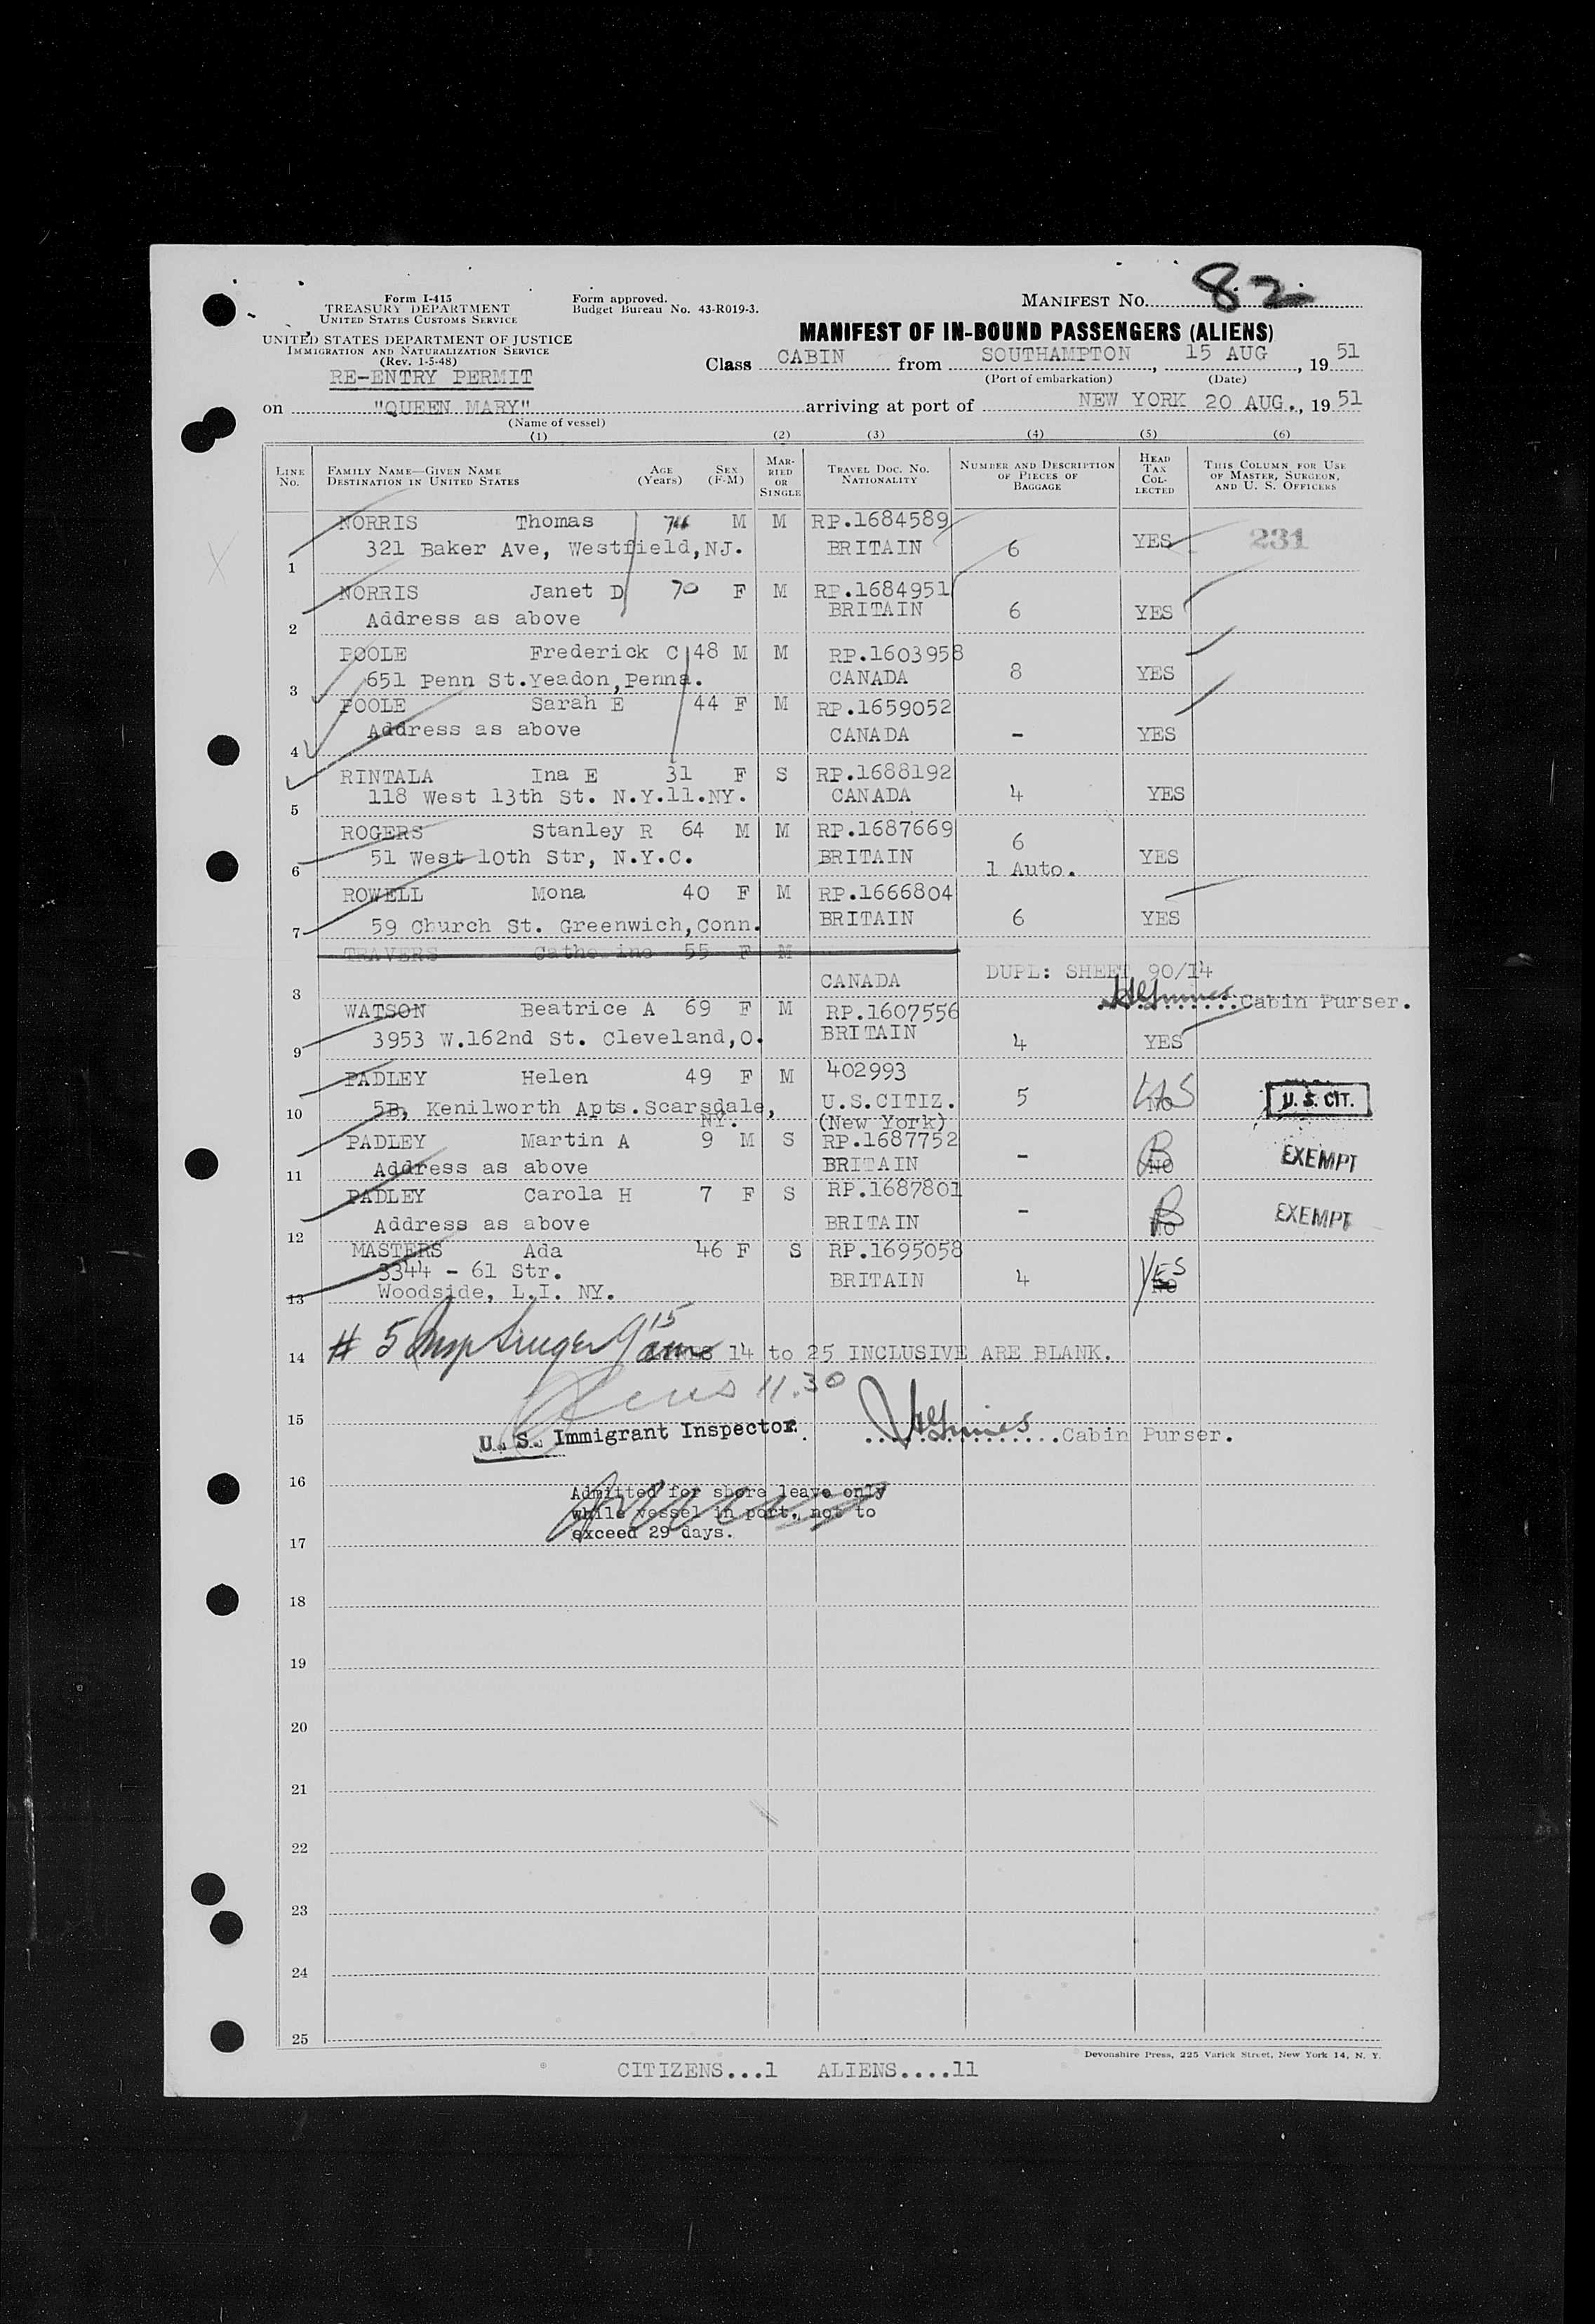 Form I-415
TREASURY DEPARTMENT
UNITED STATES CUSTOMS SERVICE
UNITED STATES DEPARTMENT OF JUSTICE
IMMIGRATION AND NATURALIZATION SERVICE
(Rev. 1-5-48)
RE-ENTRY PERMIT
Form approved.
Budget Bureau No. 43-R019-3.
MANIFEST NO. 82
MANIFEST OF IN-BOUND PASSENGERS (ALIENS)
Class CABIN from SOUTHAMPTON, 15 AUG, 19 51
(Port of embarkation) (Date)
on "QUEEN MARY" arriving at port of NEW YORK 20 AUG., 19 51
(Name of vessel)
(1) (2) (3) (4) (5) (6)
LINE NO. FAMILY NAME—GIVEN NAME DESTINATION IN UNITED STATES AGE (Years) SEX (F-M) MARRIED OR SINGLE TRAVEL DOC. NO. NATIONALITY NUMBER AND DESCRIPTION OF PIECES OF BAGGAGE HEAD TAX COLLECTED THIS COLUMN FOR USE OF MASTER, SURGEON, AND U. S. OFFICERS
NORRIS Thomas M M RP.1684589
1 321 Baker Ave, Westfield,NJ. BRITAIN 6 YES 231
NORRIS Janet D 70 F M RP.1684951
2 Address as above BRITAIN 6 YES
POOLE Frederick C 48 M M RP.1603958
3 651 Penn St.Yeadon,Penna. CANADA 8 YES
POOLE Sarah E 44 F M RP.1659052
4 Address as above CANADA - YES
RINTALA Ina E 31 F S RP.1688192
5 118 West 13th St. N.Y.11.NY. CANADA 4 YES
ROGERS Stanley R 64 M M RP.1687669
6 51 West 10th Str, N.Y.C. BRITAIN 6 1 Auto. YES
ROWELL Mona 40 F M RP.1666804
7 59 Church St. Greenwich,Conn. BRITAIN 6 YES
TRAVERS Catherine 55 F M
8 CANADA DUPL: SHEET 90/14
Cabin Purser.
WATSON Beatrice A 69 F M RP.1607556
9 3953 W.162nd St. Cleveland,O. BRITAIN 4 YES
PADLEY Helen 49 F M 402993
10 5B, Kenilworth Apts.Scarsdale, NY. U.S.CITIZ. (New York) 5 NO U. S. CIT.
PADLEY Martin A 9 M S RP.1687752
11 Address as above BRITAIN - NO EXEMPT
PADLEY Carola H 7 F S RP.1687801
12 Address as above BRITAIN - NO EXEMPT
MASTERS Ada 46 F S RP.1695058
3344 - 61 Str.
13 Woodside, L.I. NY. BRITAIN 4 YES NO
# 5 Insp Singer 9 15 am
14 LINES 14 to 25 INCLUSIVE ARE BLANK.
11.30
15
U. S. Immigrant Inspector. Cabin Purser.
16
Admitted for shore leave only
while vessel in port, not to
exceed 29 days.
17
18
19
20
21
22
23
24
25
Devonshire Press, 225 Varick Street, New York 14, N. Y.
CITIZENS...1 ALIENS....11